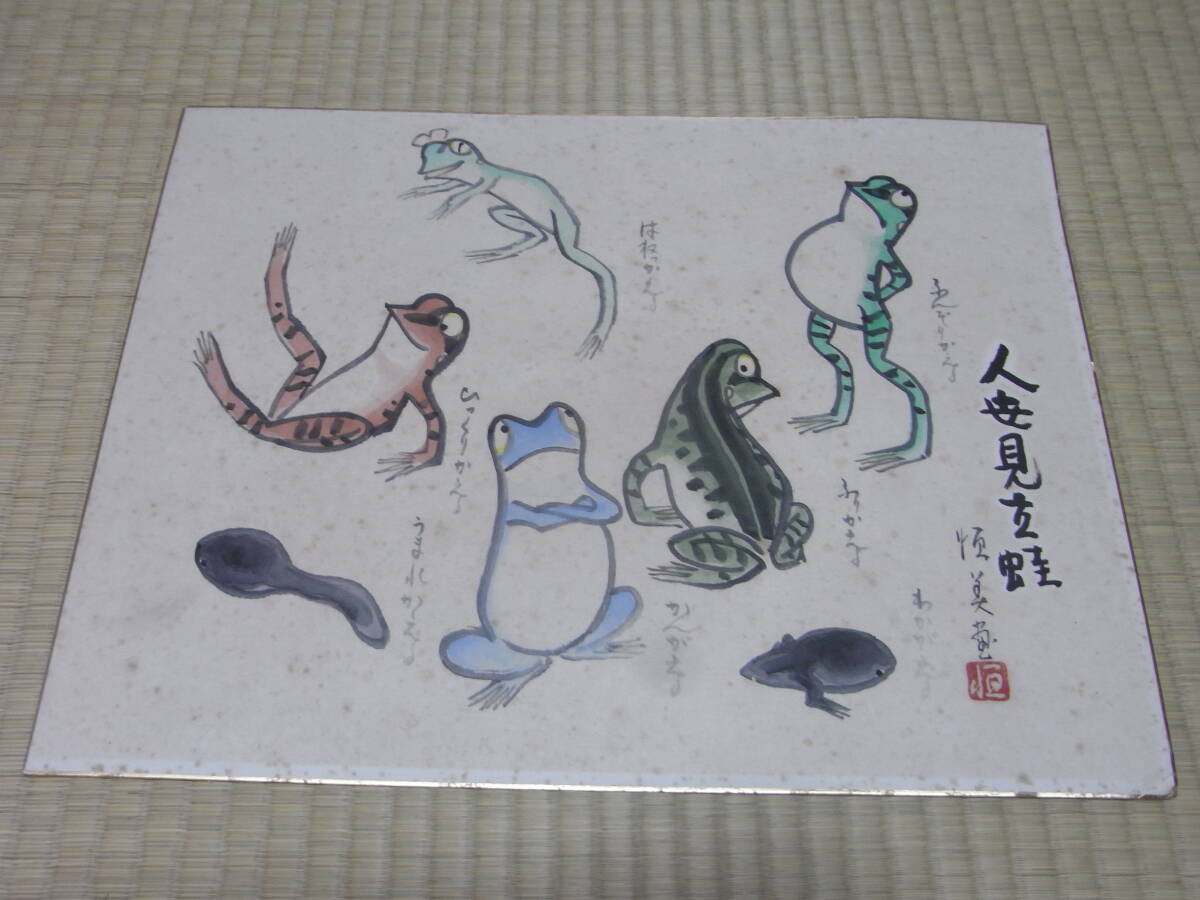 人世見立蛙
恒美画
恒
ふんぞりかえる
はねかえる
ふりかえる
ひっくりかえる
わかがえる
かんがえる
うまれかえる